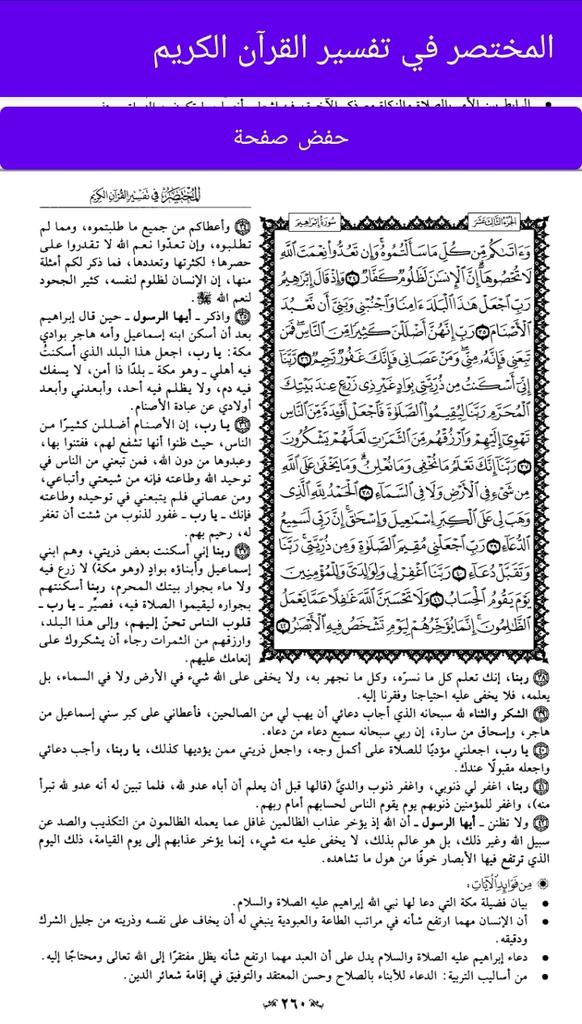 المختصر في تفسير القرآن الكريم
حفض صفحة
المختصر في تفسير القرآن الكريم
الجزء الثالث عشر
سورة إبراهيم
وَءَاتَىٰكُم مِّن كُلِّ مَا سَأَلْتُمُوهُ وَإِن تَعُدُّوا۟ نِعْمَتَ ٱللَّهِ
لَا تُحْصُوهَآ إِنَّ ٱلْإِنسَـٰنَ لَظَلُومٌ كَفَّارٌ ٣٤ وَإِذْ قَالَ إِبْرَٰهِيمُ
رَبِّ ٱجْعَلْ هَـٰذَا ٱلْبَلَدَ ءَامِنًا وَٱجْنُبْنِى وَبَنِىَّ أَن نَّعْبُدَ
ٱلْأَصْنَامَ ٣٥ رَبِّ إِنَّهُنَّ أَضْلَلْنَ كَثِيرًا مِّنَ ٱلنَّاسِ فَمَن
تَبِعَنِى فَإِنَّهُۥ مِنِّى وَمَنْ عَصَانِى فَإِنَّكَ غَفُورٌ رَّحِيمٌ ٣٦ رَّبَّنَآ
إِنِّىٓ أَسْكَنتُ مِن ذُرِّيَّتِى بِوَادٍ غَيْرِ ذِى زَرْعٍ عِندَ بَيْتِكَ
ٱلْمُحَرَّمِ رَبَّنَا لِيُقِيمُوا۟ ٱلصَّلَوٰةَ فَٱجْعَلْ أَفْـِٔدَةً مِّنَ ٱلنَّاسِ
تَهْوِىٓ إِلَيْهِمْ وَٱرْزُقْهُم مِّنَ ٱلثَّمَرَٰتِ لَعَلَّهُمْ يَشْكُرُونَ
٣٧ رَبَّنَآ إِنَّكَ تَعْلَمُ مَا نُخْفِى وَمَا نُعْلِنُ وَمَا يَخْفَىٰ عَلَى ٱللَّهِ
مِن شَىْءٍ فِى ٱلْأَرْضِ وَلَا فِى ٱلسَّمَآءِ ٣٨ ٱلْحَمْدُ لِلَّهِ ٱلَّذِى
وَهَبَ لِى عَلَى ٱلْكِبَرِ إِسْمَـٰعِيلَ وَإِسْحَـٰقَ إِنَّ رَبِّى لَسَمِيعُ
ٱلدُّعَآءِ ٣٩ رَبِّ ٱجْعَلْنِى مُقِيمَ ٱلصَّلَوٰةِ وَمِن ذُرِّيَّتِى رَبَّنَا
وَتَقَبَّلْ دُعَآءِ ٤٠ رَبَّنَا ٱغْفِرْ لِى وَلِوَٰلِدَىَّ وَلِلْمُؤْمِنِينَ
يَوْمَ يَقُومُ ٱلْحِسَابُ ٤١ وَلَا تَحْسَبَنَّ ٱللَّهَ غَـٰفِلًا عَمَّا يَعْمَلُ
ٱلظَّـٰلِمُونَ إِنَّمَا يُؤَخِّرُهُمْ لِيَوْمٍ تَشْخَصُ فِيهِ ٱلْأَبْصَـٰرُ ٤٢
٣٤ وأعطاكم من جميع ما طلبتموه، ومما لم
تطلبوه، وإن تعدّوا نعم الله لا تقدروا على
حصرها؛ لكثرتها وتعددها، فما ذكر لكم أمثلة
منها، إن الإنسان لظلوم لنفسه، كثير الجحود
لنعم الله ﷻ.
٣٥ واذكر ـ أيها الرسول ـ حين قال إبراهيم
بعد أن أسكن ابنه إسماعيل وأمه هاجر بوادي
مكة: يا رب، اجعل هذا البلد الذي أسكنتُ
فيه أهلي ـ وهو مكة ـ بلدًا ذا أمن، لا يسفك
فيه دم، ولا يظلم فيه أحد، وأبعدني وأبعد
أولادي عن عبادة الأصنام.
٣٦ يا رب، إن الأصنام أضللن كثيرًا من
الناس، حيث ظنوا أنها تشفع لهم، ففتنوا بها،
وعبدوها من دون الله، فمن تبعني من الناس في
توحيد الله وطاعته فإنه من شيعتي وأتباعي،
ومن عصاني فلم يتبعني في توحيده وطاعته
فإنك ـ يا رب ـ غفور لذنوب من شئت أن تغفر
له، رحيم بهم.
٣٧ ربنا إني أسكنت بعض ذريتي، وهم ابني
إسماعيل وأبناؤه بوادٍ (وهو مكة) لا زرع فيه
ولا ماء بجوار بيتك المحرم، ربنا أسكنتهم
بجواره ليقيموا الصلاة فيه، فصيّر ـ يا رب ـ
قلوب الناس تحنّ إليهم، وإلى هذا البلد،
وارزقهم من الثمرات رجاء أن يشكروك على
إنعامك عليهم.
٣٨ ربنا، إنك تعلم كل ما نسرّه، وكل ما نجهر به، ولا يخفى على الله شيء في الأرض ولا في السماء، بل
يعلمه، فلا يخفى عليه احتياجنا وفقرنا إليه.
٣٩ الشكر والثناء لله سبحانه الذي أجاب دعائي أن يهب لي من الصالحين، فأعطاني على كبر سني إسماعيل من
هاجر، وإسحاق من سارة، إن ربي سبحانه سميع دعاء من دعاه.
٤٠ يا رب، اجعلني مؤديًا للصلاة على أكمل وجه، واجعل ذريتي ممن يؤديها كذلك، يا ربنا، وأجب دعائي
واجعله مقبولًا عندك.
٤١ ربنا، اغفر لي ذنوبي، واغفر ذنوب والديَّ (قالها قبل أن يعلم أن أباه عدو لله، فلما تبين له أنه عدو لله تبرأ
منه)، واغفر للمؤمنين ذنوبهم يوم يقوم الناس لحسابهم أمام ربهم.
٤٢ ولا تظنن ـ أيها الرسول ـ أن الله إذ يؤخر عذاب الظالمين غافل عما يعمله الظالمون من التكذيب والصد عن
سبيل الله وغير ذلك، بل هو عالم بذلك، لا يخفى عليه منه شيء، إنما يؤخر عذابهم إلى يوم القيامة، ذلك اليوم
الذي ترتفع فيها الأبصار خوفًا من هول ما تشاهده.
من فوائد الآيات:
• بيان فضيلة مكة التي دعا لها نبي الله إبراهيم عليه الصلاة والسلام.
• أن الإنسان مهما ارتفع شأنه في مراتب الطاعة والعبودية ينبغي له أن يخاف على نفسه وذريته من جليل الشرك
ودقيقه.
• دعاء إبراهيم عليه الصلاة والسلام يدل على أن العبد مهما ارتفع شأنه يظل مفتقرًا إلى الله تعالى ومحتاجًا إليه.
• من أساليب التربية: الدعاء للأبناء بالصلاح وحسن المعتقد والتوفيق في إقامة شعائر الدين.
٢٦٠